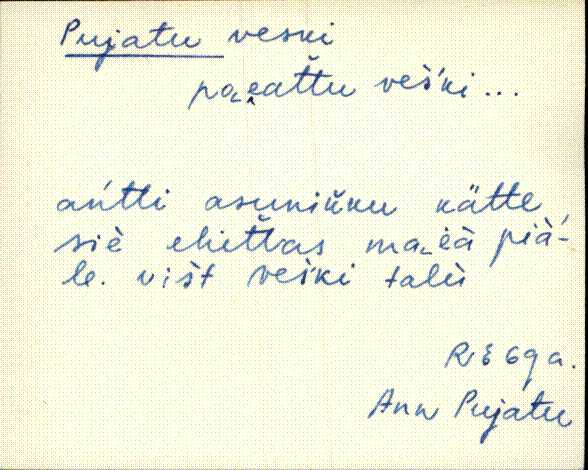 Pujatu veski
pa̬eat̆tu veš́ki...
ańtti asunik̆ku kätte
siè ehit̆tas ma̬èà pià-
le. vis̀t veś́ki talù
R E 69 a.
Ann Pujatu